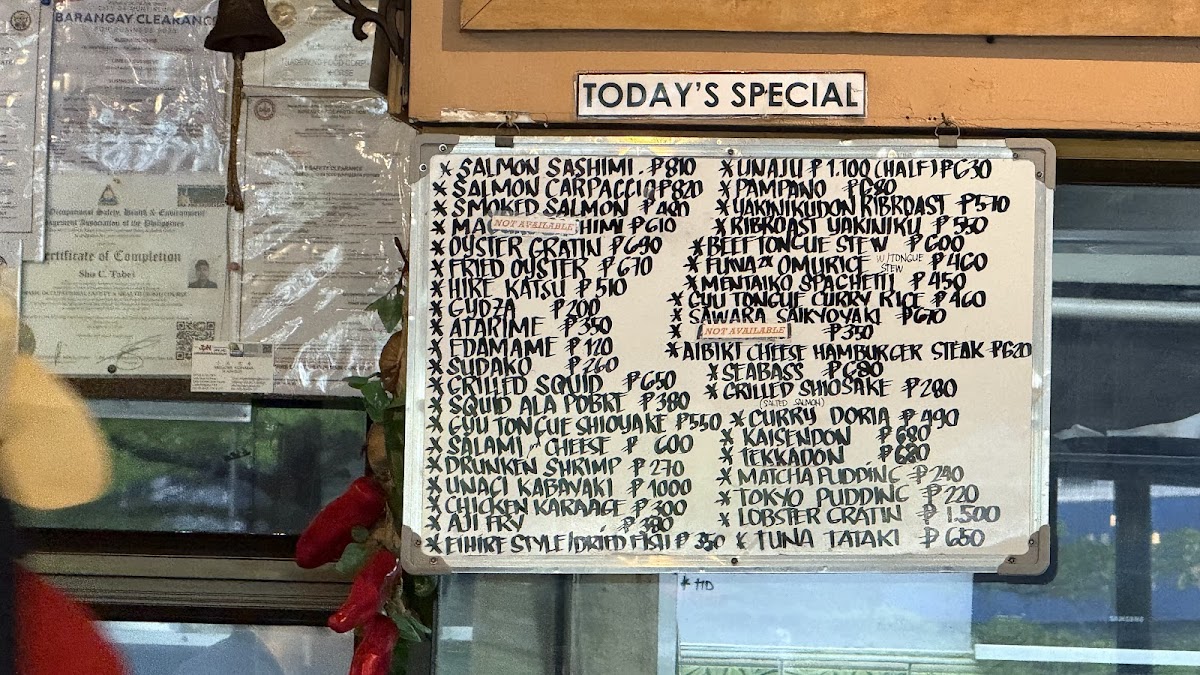 BARANGAY CLEARANCE
Occupational Safety, Health & Environment
Management Association of the Philippines
Certificate of Completion
Sho C. Tabei
TODAY'S SPECIAL
* SALMON SASHIMI . ₱810
* SALMON CARPACCIO ₱820
* SMOKED SALMON ₱480
* MA NOT AVAILABLE HIMI ₱610
* OYSTER GRATIN ₱690
* FRIED OYSTER ₱670
* HIRE KATSU ₱510
* GYOZA ₱200
* ATARIME ₱350
* EDAMAME ₱120
* SUDAKO ₱260
* GRILLED SQUID ₱650
* SQUID ALA POBRE ₱380
* GYU TONGUE SHIOYAKE ₱550
* SALAMI / CHEESE ₱ 600
* DRUNKEN SHRIMP ₱ 270
* UNAGI KABAYAKI ₱ 1000
* CHICKEN KARAAGE ₱ 300
* AJI FRY ₱ 380
* EIHIRE STYLE/DRIED FISH ₱ 350
* UNAJU ₱ 1.100 (HALF) ₱630
* PAMPANO ₱680
* YAKINIKUDON RIBROAST ₱570
* RIBROAST YAKINIKU ₱ 550
* BEEF TONGUE STEW ₱600
* FUWA2X OMURICE W/TONGUE STEW ₱460
* MENTAIKO SPAGHETTI ₱ 450
* GYU TONGUE CURRY RICE ₱460
* SAWARA SAIKYOYAKI ₱670
* NOT AVAILABLE ₱350
* AIBIKI CHEESE HAMBURGER STEAK ₱620
* SEABASS ₱680
* GRILLED SHIOSAKE ₱280
(SALTED SALMON)
* CURRY DORIA ₱ 490
* KAISENDON ₱680
* TEKKADON ₱680
* MATCHA PUDDING ₱ 240
* TOKYO PUDDING ₱ 220
* LOBSTER GRATIN ₱ 1.500
* TUNA TATAKI ₱ 650